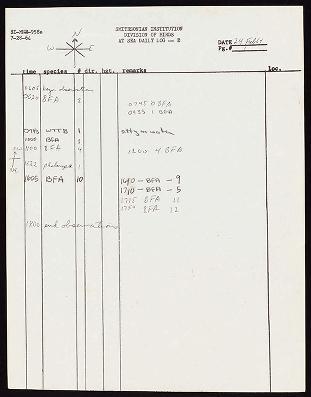 SI-MNH-958a
7-28-64
SMITHSONIAN INSTITUTION
DIVISION OF BIRDS
AT SEA DAILY LOG -- B
DATE 24
Pg.# 1
N
W E
time species # dir. hgt. remarks loc.
0605 begin observation
0620 BFA 2
0745 0 BFA
0935 1 BFA
0945 WTTB 1
1000 BFA 3
1100 BFA 4 1200 4 BFA
phalarope 1
1605 BFA 10 1640 - BFA - 9
1710 - BFA - 5
1735 BFA 11
1750 BFA 12
1800 end observations